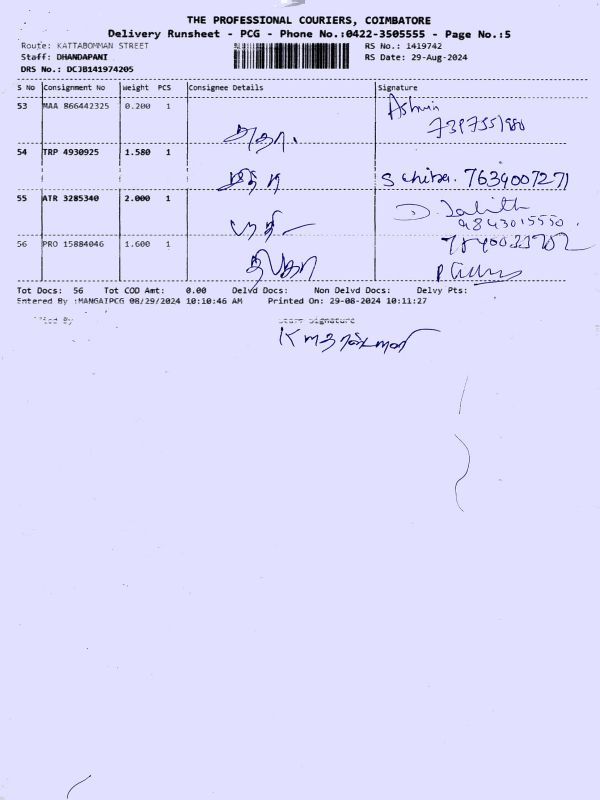 THE PROFESSIONAL COURIERS, COIMBATORE
Delivery Runsheet - PCG - Phone No.:0422-3505555 - Page No.:5
Route: KATTABOMMAN STREET RS No.: 1419742
Staff: DHANDAPANI RS Date: 29-Aug-2024
DRS No.: DCJB141974205
S No Consignment No Weight PCS Consignee Details Signature
53 MAA 866442325 0.200 1 Ashwin
54 TRP 4930925 1.580 1 7634007271
55 ATR 3285340 2.000 1
9843015550
56 PRO 15884046 1.600 1
Tot Docs: 56 Tot COD Amt: 0.00 Delvd Docs: Non Delvd Docs: Delvy Pts:
Entered By :MANGAIPCG 08/29/2024 10:10:46 AM Printed On: 29-08-2024 10:11:27
Staff Signature